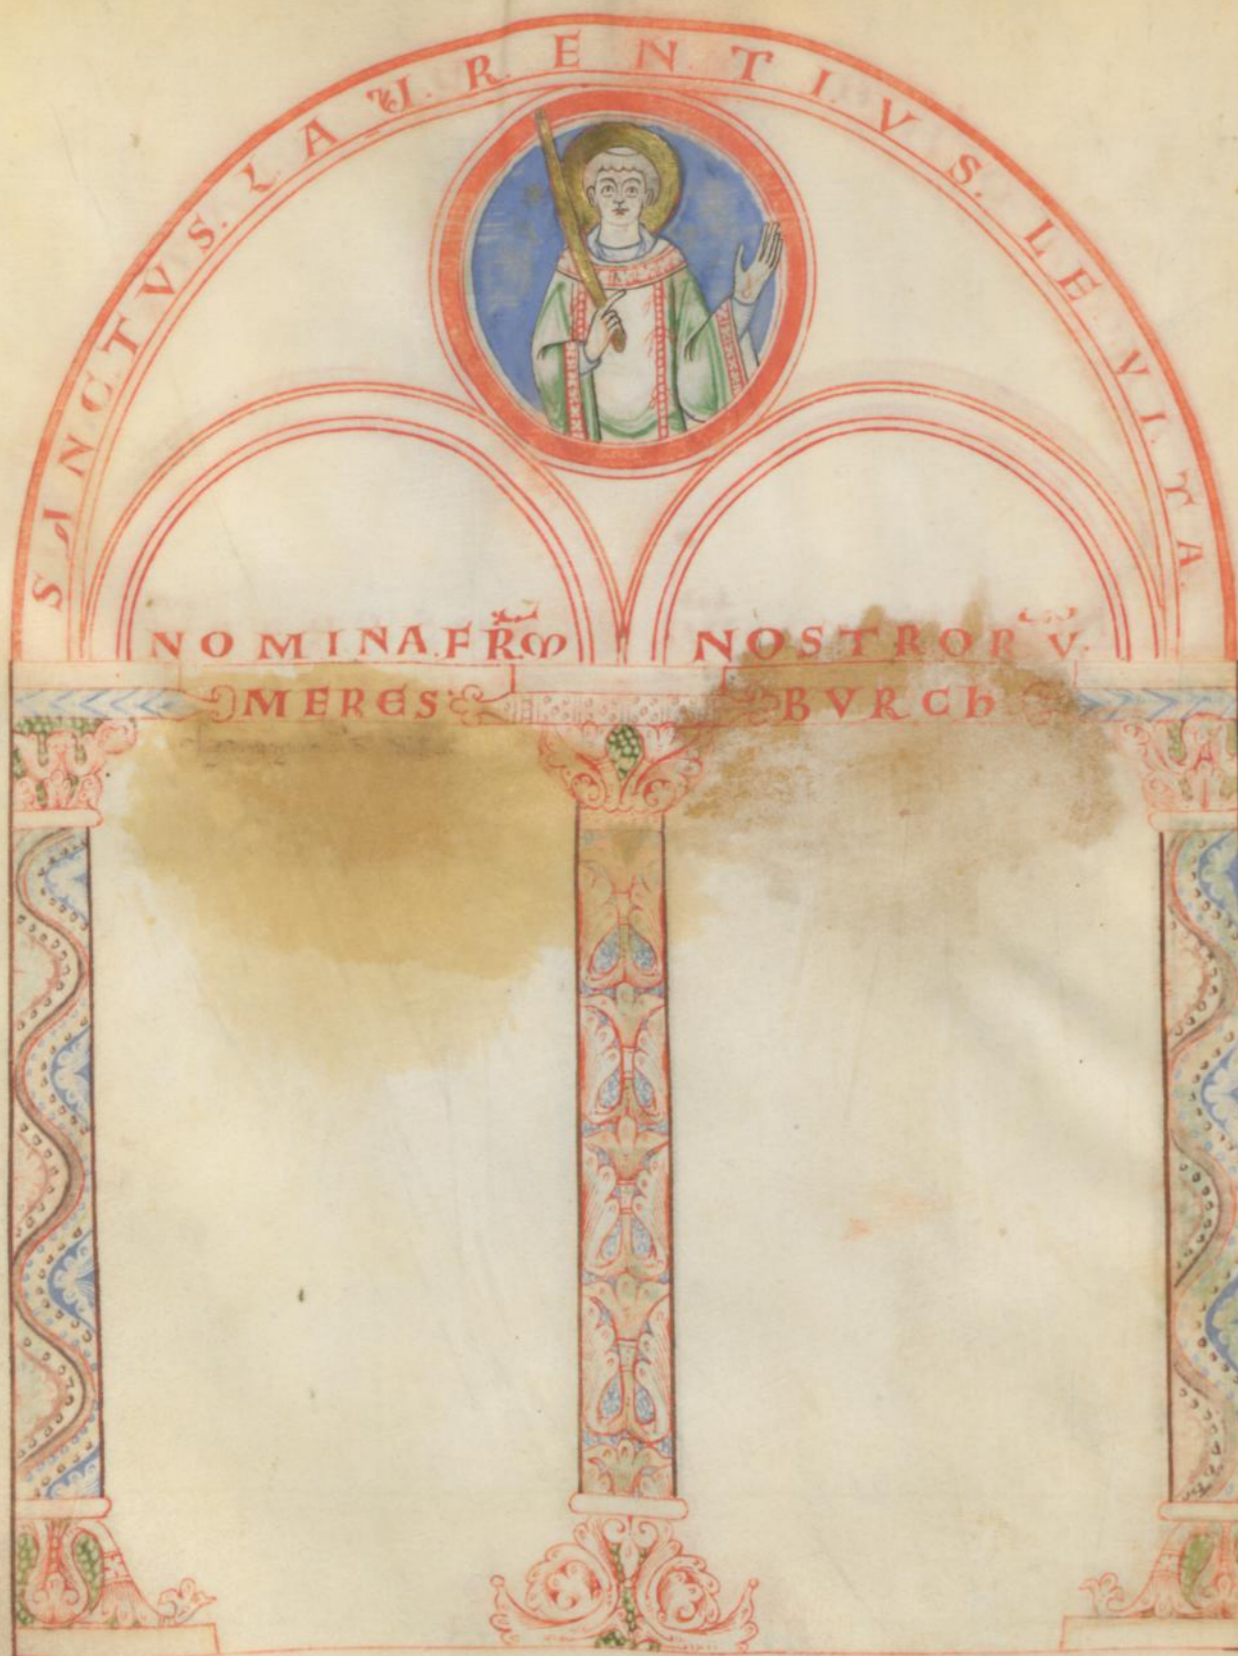 SANCTVS. LAVRENTIVS. LEVITA.
NOMINA. FR̃M NOSTRORṼ.
MERES BVRCh